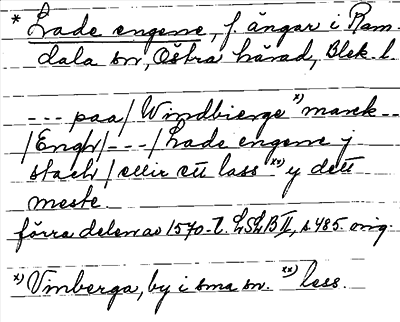 * Lade engene, f. ängar i Ram-
dala sn, Östra härad, Blek. l.
--- paa / Windbierge x) marck --
/ Engh / --- / Lade engene j
stack / ellir ett lass xx) y dett
meste.
förra delen av 1570-t. LSLB II, s. 485. orig.
x) Vinberga, by i sma sn. xx) less.